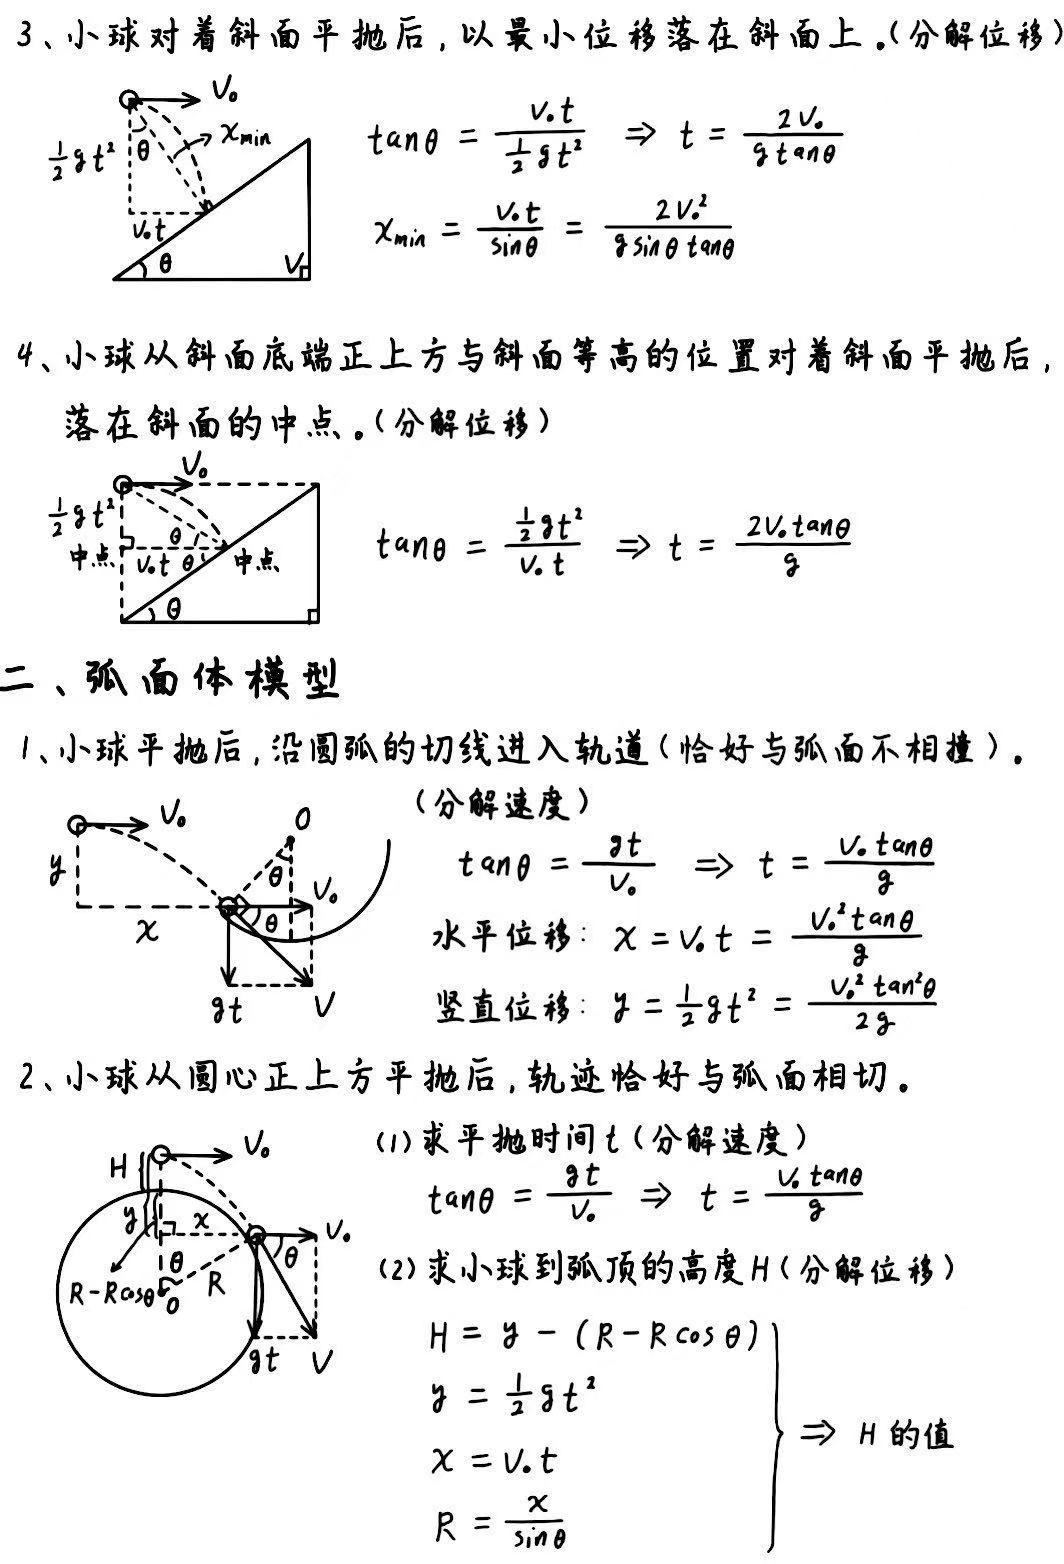 3、小球对着斜面平抛后,以最小位移落在斜面上。(分解位移)
V₀
½gt²
θ
x_min
V₀t
θ
V
tanθ = V₀t / (½gt²) ⇒ t = 2V₀ / (g tanθ)
x_min = V₀t / sinθ = 2V₀² / (g sinθ tanθ)
4、小球从斜面底端正上方与斜面等高的位置对着斜面平抛后,
落在斜面的中点。(分解位移)
V₀
½gt²
θ
中点 V₀t θ 中点
θ
tanθ = ½gt² / (V₀t) ⇒ t = 2V₀tanθ / g
二、弧面体模型
1、小球平抛后,沿圆弧的切线进入轨道(恰好与弧面不相撞)。
(分解速度)
V₀
O
y
θ
V₀
x
θ
gt
V
tanθ = gt / V₀ ⇒ t = V₀tanθ / g
水平位移: x = V₀t = V₀²tanθ / g
竖直位移: y = ½gt² = V₀²tan²θ / 2g
2、小球从圆心正上方平抛后,轨迹恰好与弧面相切。
H
V₀
y
x
V₀
θ
θ
R-Rcosθ
O
R
gt
V
(1)求平抛时间t(分解速度)
tanθ = gt / V₀ ⇒ t = V₀tanθ / g
(2)求小球到弧顶的高度H(分解位移)
H = y - (R-Rcosθ)
y = ½gt²
⇒ H的值
x = V₀t
R = x / sinθ